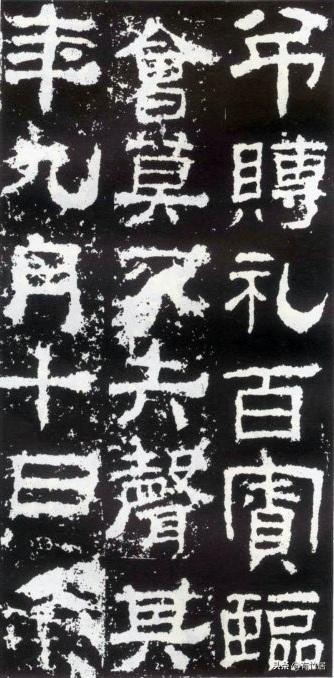 吊賻礼百賓臨
會莫不失聲其
年九月十日
头条